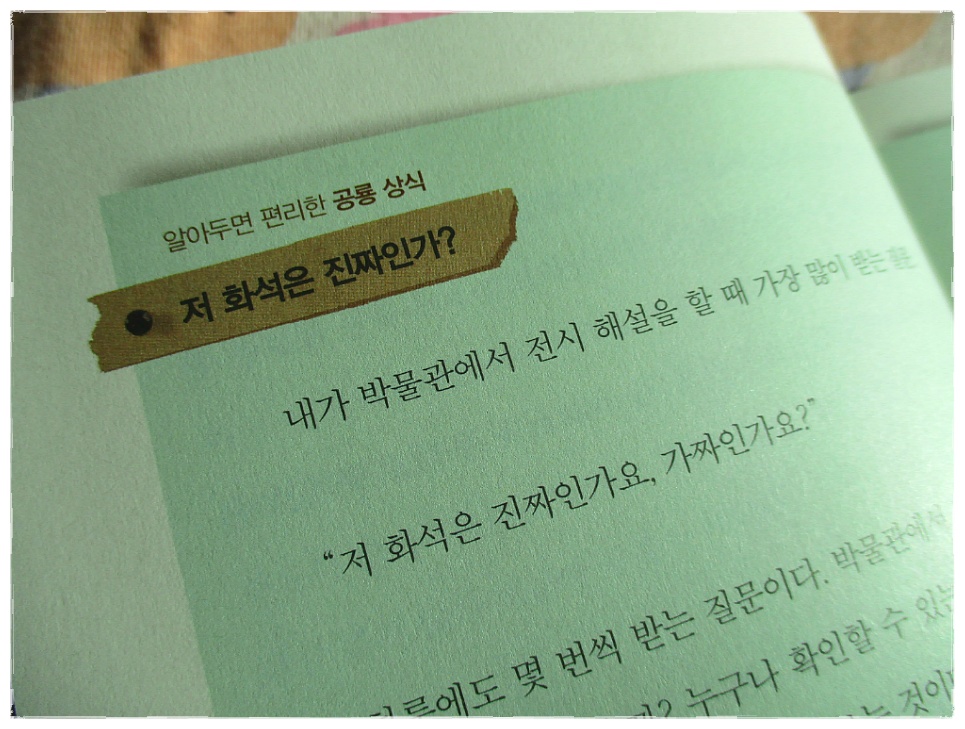 알아두면 편리한 공룡 상식
저 화석은 진짜인가?
내가 박물관에서 전시 해설을 할 때 가장 많이 받는 질문
“저 화석은 진짜인가요, 가짜인가요?”
몇 번씩 받는 질문이다. 박물관에서
누구나 확인할 수 있는